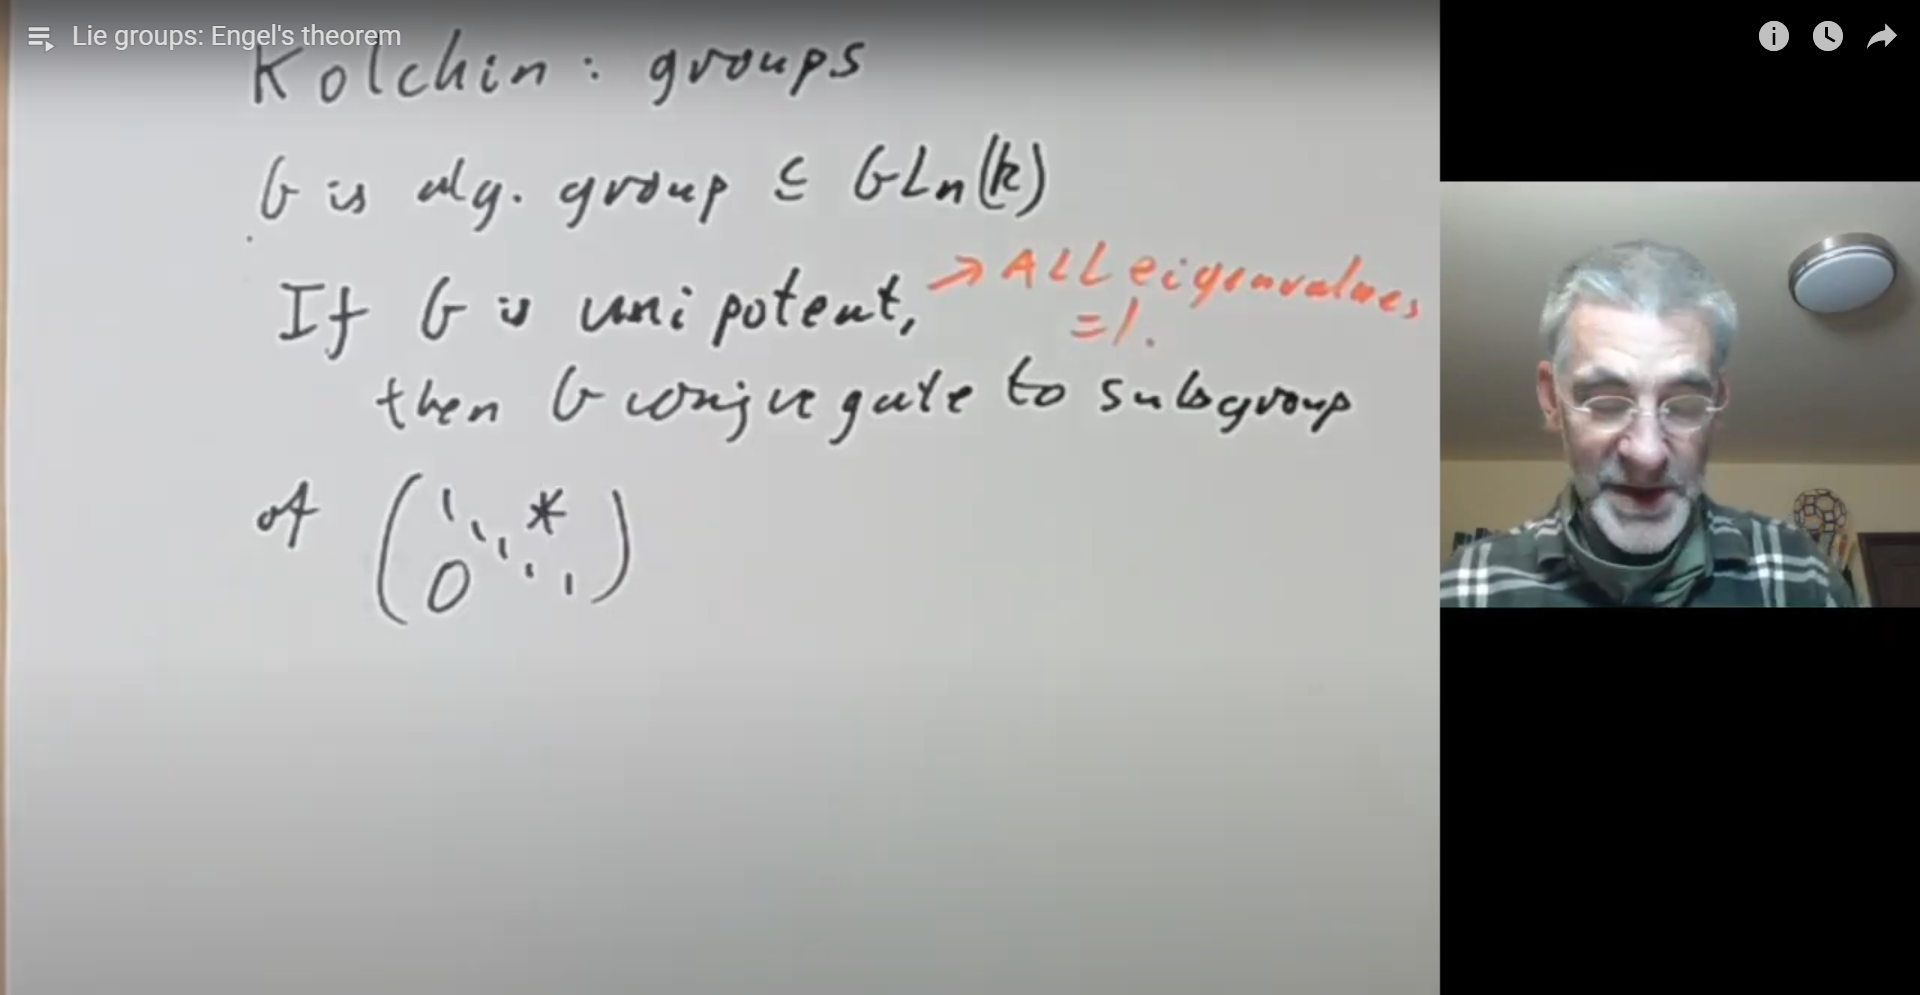 Lie groups: Engel's theorem
Kolchin: groups
G is alg. group ⊆ GLn(k)
If G is unipotent, → ALL eigenvalues
= 1.
then G conjugate to subgroup
of ( 1 1 1 1 1 * 0 )